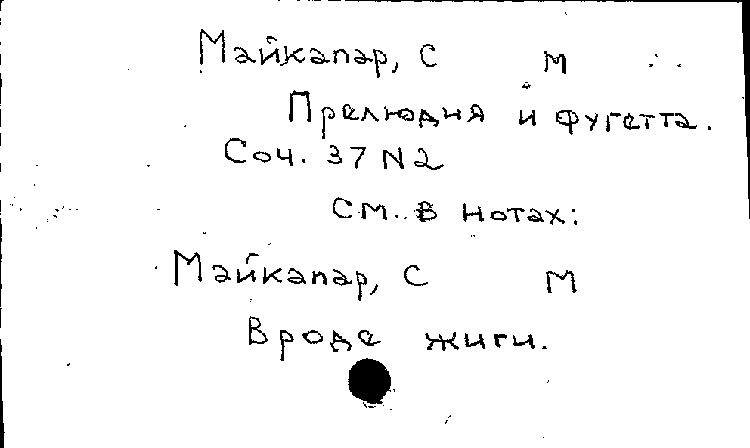 Майкапар, С М
Прелюдия и фугетта.
Соч. 37 N 2
см. в нотах:
Майкапар, С М
Вроде жиги.